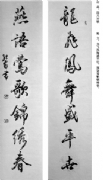 龍飛鳳舞盛平世
燕語鶯歌錦繡春